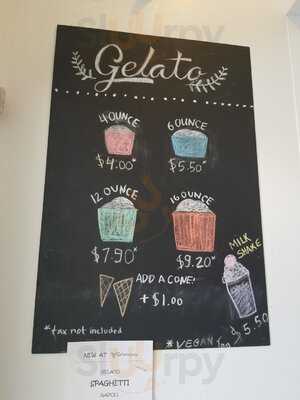 Gelato
4 OUNCE
6 OUNCE
$4.00*
$5.50*
12 OUNCE
16 OUNCE
$7.90*
$9.20*
MILK
SHAKE
ADD A CONE!
+ $1.00
$5.50
*tax not included
*VEGAN
NEW AT
GELATO
SPAGHETTI
NAPOLI